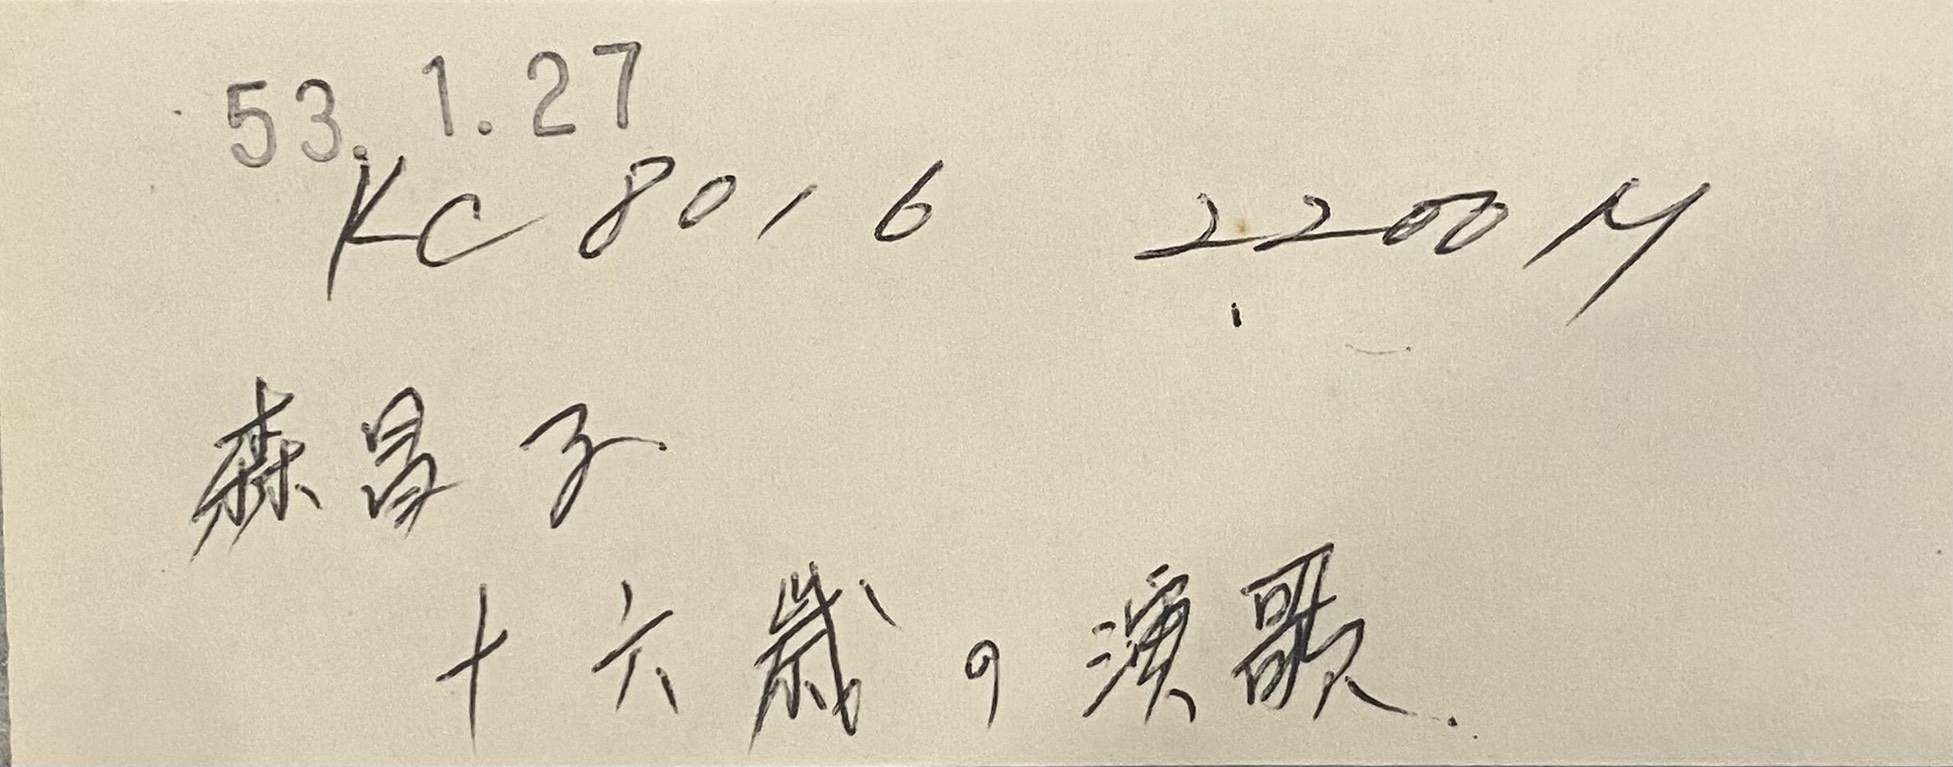 53.1.27
KC 8016 2200M
森昌子
十六歳の演歌.